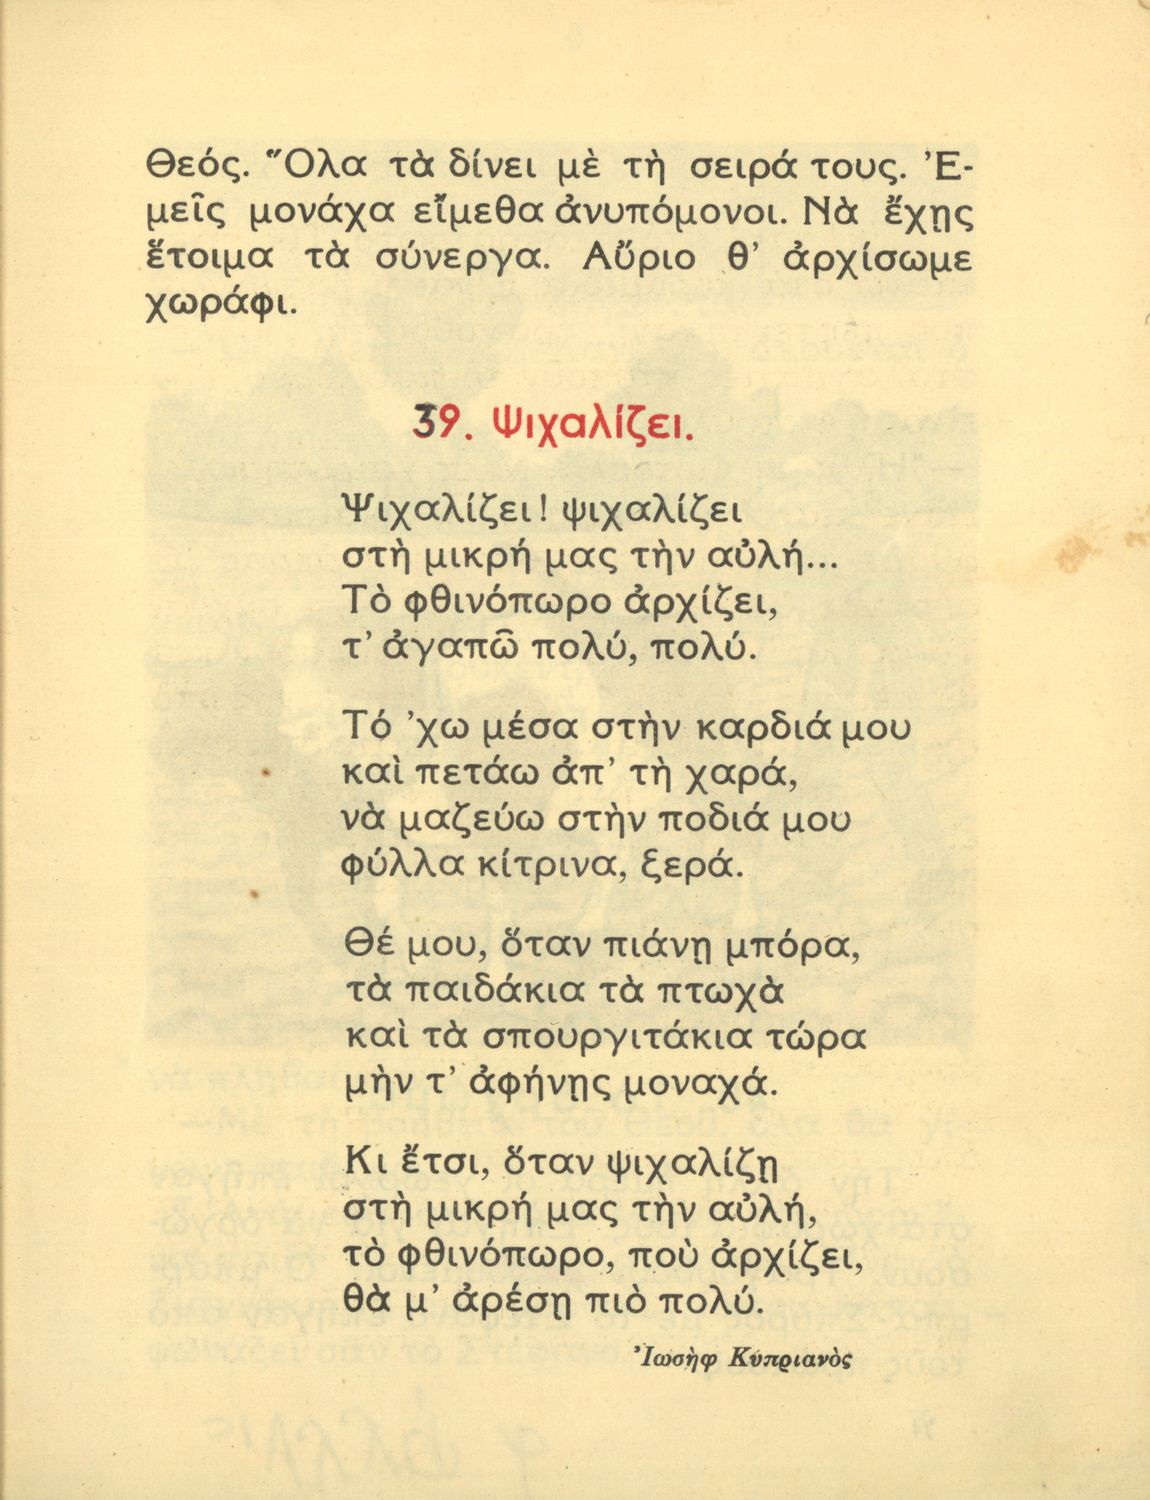 Θεός. Ὅλα τὰ δίνει μὲ τὴ σειρά τους. Ἐ-
μεῖς μονάχα εἴμεθα ἀνυπόμονοι. Νὰ ἔχῃς
ἕτοιμα τὰ σύνεργα. Αὔριο θ’ ἀρχίσωμε
χωράφι.
39. Ψιχαλίζει.
Ψιχαλίζει! ψιχαλίζει
στὴ μικρή μας τὴν αὐλή...
Τὸ φθινόπωρο ἀρχίζει,
τ’ ἀγαπῶ πολύ, πολύ.
Τό ’χω μέσα στὴν καρδιά μου
καὶ πετάω ἀπ’ τὴ χαρά,
νὰ μαζεύω στὴν ποδιά μου
φύλλα κίτρινα, ξερά.
Θέ μου, ὅταν πιάνῃ μπόρα,
τὰ παιδάκια τὰ πτωχὰ
καὶ τὰ σπουργιτάκια τώρα
μὴν τ’ ἀφήνῃς μοναχά.
Κι ἔτσι, ὅταν ψιχαλίζῃ
στὴ μικρή μας τὴν αὐλή,
τὸ φθινόπωρο, ποὺ ἀρχίζει,
θὰ μ’ ἀρέσῃ πιὸ πολύ.
Ἰωσὴφ Κυπριανὸς